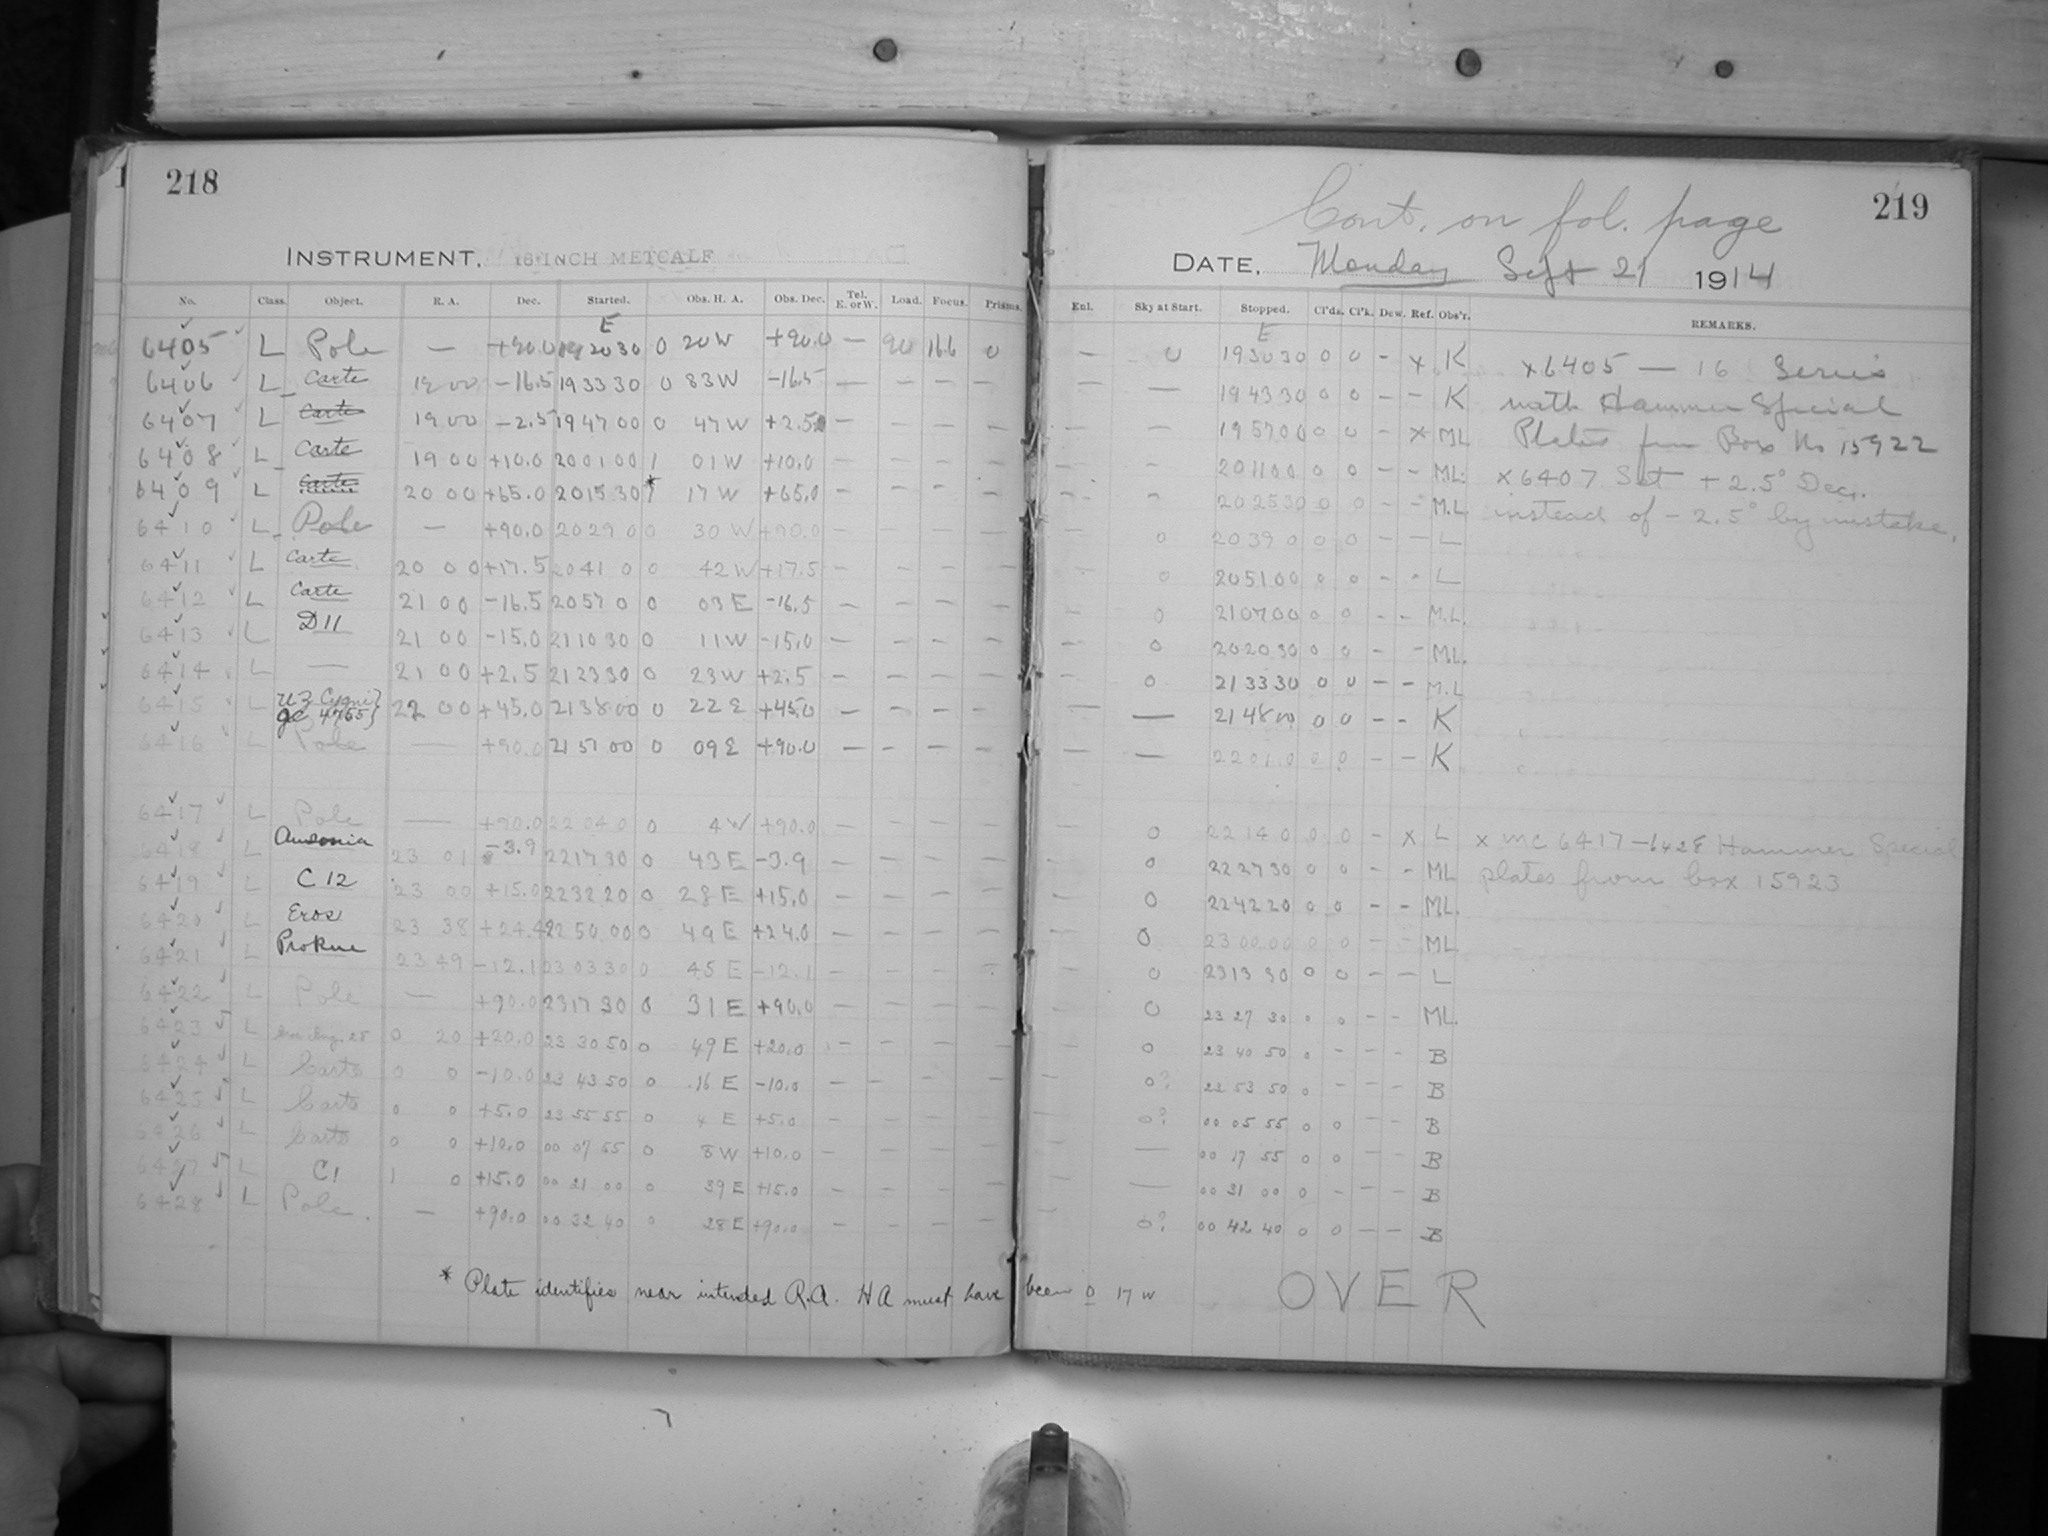 218
INSTRUMENT. 16-INCH METCALF
No. Class. Object. R. A. Dec. Started. Obs. H. A. Obs. Dec. Tel. E. or W. Load. Focus. Prisms.
E
6405 L Pole — +90.0 19 20 30 0 20 W +90.0 — 90 16.6 0
6406 L Carte 19 00 -16.5 19 33 30 0 83 W -16.5 — — — —
6407 L Carte 19 00 -2.5 19 47 00 0 47 W +2.5 — — — —
6408 L Carte 19 00 +10.0 20 01 00 1 01 W +10.0 — — — —
6409 L Carte 20 00 +65.0 20 15 30 1* 17 W +65.0 — — — —
6410 L Pole — +90.0 20 29 0 0 30 W +90.0 — — — —
6411 L Carte 20 00 +17.5 20 41 0 0 42 W +17.5 — — — —
6412 L Carte 21 00 -16.5 20 57 0 0 03 E -16.5 — — — —
6413 L D11 21 00 -15.0 21 10 30 0 11 W -15.0 — — — —
6414 L — 21 00 +2.5 21 23 30 0 23 W +2.5 — — — —
6415 L UZ Cygni} gc 4765} 22 00 +45.0 21 38 00 0 22 E +45.0 — — — —
6416 L Pole — +90.0 21 51 00 0 09 E +90.0 — — — —
6417 L Pole — +90.0 22 04 0 0 4 W +90.0 — — — —
6418 L Ausonia 23 01 -3.9 22 17 30 0 43 E -3.9 — — — —
6419 L C 12 23 00 +15.0 22 32 20 0 28 E +15.0 — — — —
6420 L Eros 23 38 +24.4 22 50 00 0 49 E +24.0 — — — —
6421 L Prokne 23 49 -12.1 23 03 30 0 45 E -12.1 — — — —
6422 L Pole — +90.0 23 17 30 0 31 E +90.0 — — — —
6423 L 0 20 +20.0 23 30 50 0 49 E +20.0 — — — —
6424 L Carte 0 0 -10.0 23 43 50 0 16 E -10.0 — — — —
6425 L Carte 0 0 +5.0 23 55 55 0 4 E +5.0 — — — —
6426 L Carte 0 0 +10.0 00 07 55 0 8 W +10.0 — — — —
6427 L C1 1 0 +15.0 00 21 00 0 39 E +15.0 — — — —
6428 L Pole. — +90.0 00 32 40 0 28 E +90.0 — — — —
* Plate identifies near intended R.A. H A must have been 0 17 W
219
Cont. on fol. page
DATE. Monday Sept 21 1914
Enl. Sky at Start. Stopped. Cl'ds. Cl'k. Dew. Ref. Obs'r. REMARKS.
E
— 0 19 30 30 0 0 - x K x6405 — 16 Series
— — 19 43 30 0 0 - - K with Hammer Special
— — 19 57 00 0 0 - x ML Plates from Box No 15922
— - 20 11 00 0 0 - - ML. x6407 Set +2.5° Dec.
— - 20 25 30 0 0 - - M.L instead of -2.5° by mistake.
— 0 20 39 0 0 0 - - L
— 0 20 51 00 0 0 - - L
— 0 21 07 00 0 0 - - M.L.
— 0 20 20 30 0 0 - - ML.
— 0 21 33 30 0 0 - - M.L
— — 21 48 00 0 0 - - K
— — 22 01 0 0 0 - - K
— 0 22 14 0 0 0 - x L x MC 6417-6428 Hammer Special
— 0 22 27 30 0 0 - - ML plates from box 15923
— 0 22 42 20 0 0 - - ML.
— 0 23 00 00 0 0 - - ML
— 0 23 13 30 0 0 - - L
— 0 23 27 30 0 0 - - ML.
— 0 23 40 50 0 - - - B
— 0? 23 53 50 0 - - - B
— 0? 00 05 55 0 0 - - B
— — 00 17 55 0 0 - - B
— — 00 31 00 0 - - - B
— 0? 00 42 40 0 0 - - B
OVER